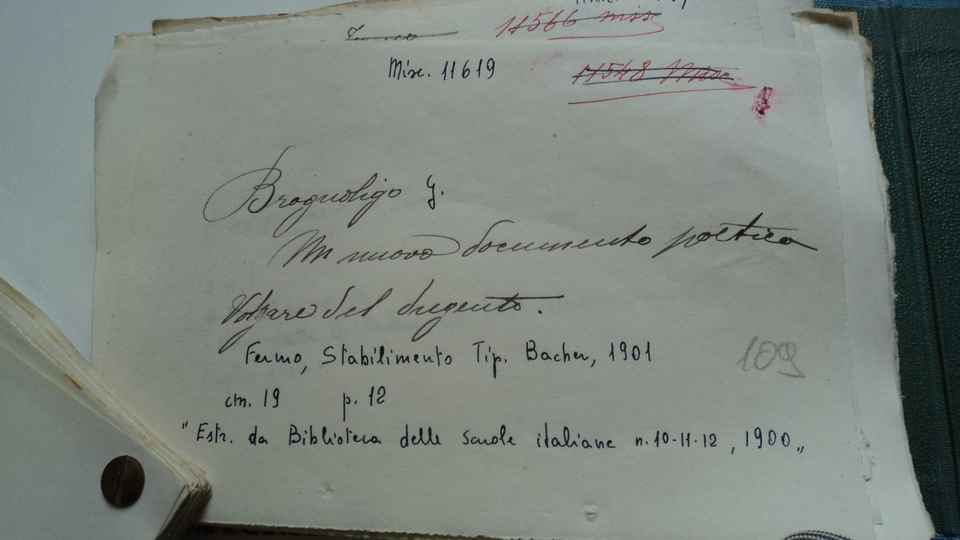 11566 misc
Misc. 11619
11548 Misc
Brognoligo G.
Un nuovo documento poetico
Volgare del dugento.
Fermo, Stabilimento Tip. Bacher, 1901
109
cm. 19 p. 12
"Estr. da Biblioteca delle scuole italiane n. 10-11-12, 1900"